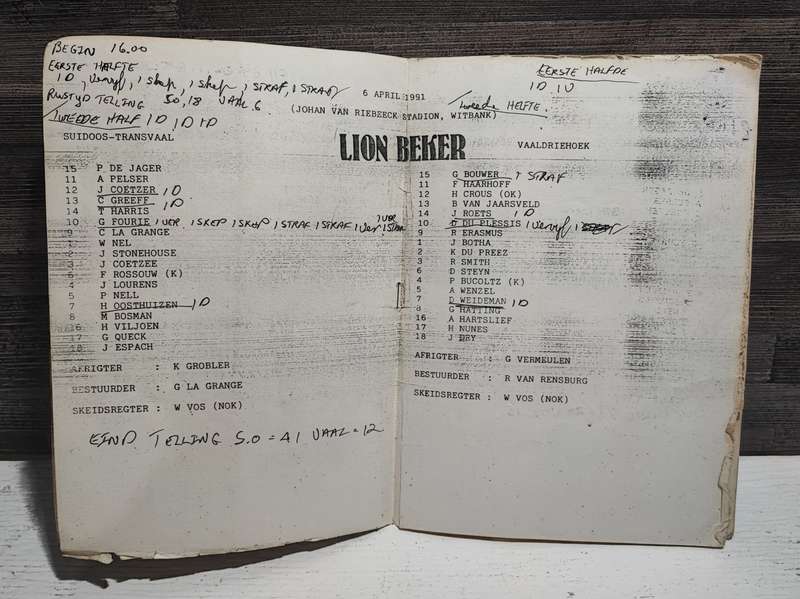 BEGIN 16.00
EERSTE HALFTE
1D, Vervyf, 1 skep, 1 skep, 1 STRAF, 1 STRAF
RustyD TELLING SO, 18 VAAL 6
TWEEDE HALF 1D 1D 1D
SUIDOOS-TRANSVAAL
15 P DE JAGER
11 A PELSER
12 J COETZER 1D
13 C GREEFF 1D
14 T HARRIS
10 G FOURIE 1 VER, 1 SKEP, 1 SKOP, 1 STRAF, 1 STRAF, 1 VER
9 C LA GRANGE
W NEL
J STONEHOUSE
J COETZEE
F ROSSOUW (K)
J LOURENS
P NELL
7 H OOSTHUIZEN 1D
8 M BOSMAN
16 H VILJOEN
17 G QUECK
18 J ESPACH
AFRIGTER : K GROBLER
BESTUURDER : G LA GRANGE
SKEIDSREGTER : W VOS (NOK)
EIND TELLING S.O = 41 VAAL = 12
6 APRIL 1991
(JOHAN VAN RIEBEECK STADION, WITBANK)
LION BEKER
EERSTE HALFDE
1D 1V
Tweede HELFTE
VAALDRIEHOEK
15 G BOUWER 1 STRAF
11 F HAARHOFF
12 H CROUS (OK)
13 B VAN JAARSVELD
14 J ROETS 1D
10 D DU PLESSIS 1 Vervyf
9 R ERASMUS
1 J BOTHA
2 K DU PREEZ
3 R SMITH
6 D STEYN
4 P BUCOLTZ (K)
5 A WENZEL
7 D WEIDEMAN 1D
8 G HATTING
16 A HARTSLIEF
17 H NUNES
18 J DRY
AFRIGTER : G VERMEULEN
BESTUURDER : R VAN RENSBURG
SKEIDSREGTER : W VOS (NOK)